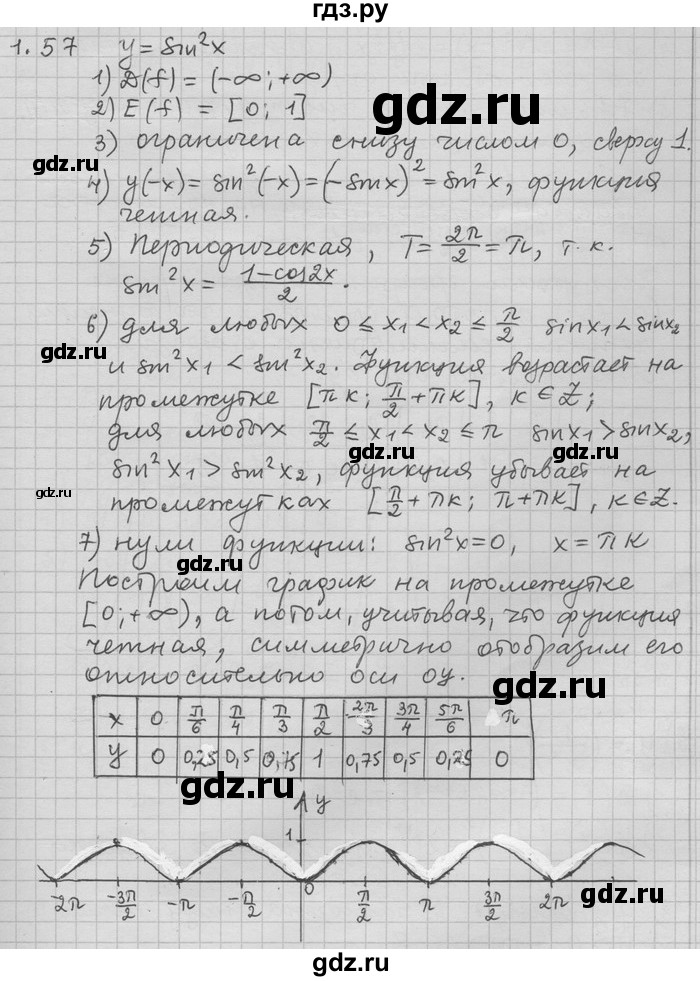 гдз.ру
1.57 y = sin²x
1) D(f) = (-∞; +∞)
2) E(f) = [0; 1]
3) ограничена снизу числом 0, сверху 1.
4) y(-x) = sin²(-x) = (-sinx)² = sin²x, функция
четная.
5) Периодическая, T = 2π/2 = π, т.к.
sin²x = (1-cos2x)/2.
6) для любых 0 ≤ x₁ < x₂ ≤ π/2 sinx₁ < sinx₂
и sin²x₁ < sin²x₂. Функция возрастает на
промежутке [πk; π/2 + πk], k ∈ Z;
для любых π/2 ≤ x₁ < x₂ ≤ π sinx₁ > sinx₂,
sin²x₁ > sin²x₂, функция убывает на
промежутках [π/2 + πk; π + πk], k ∈ Z.
7) нули функции: sin²x = 0, x = πk
Построим график на промежутке
[0; +∞), а потом, учитывая, что функция
четная, симметрично отобразим его
относительно оси оу.
x 0 π/6 π/4 π/3 π/2 2π/3 3π/4 5π/6 π
y 0 0,25 0,5 0,75 1 0,75 0,5 0,25 0
y
1
-2π -3π/2 -π -π/2 0 π/2 π 3π/2 2π
gdz.ru
gdz.ru
gdz.ru
gdz.ru
gdz.ru
gdz.ru
gdz.ru
gdz.ru
gdz.ru
gdz.ru
gdz.ru
gdz.ru
gdz.ru
gdz.ru